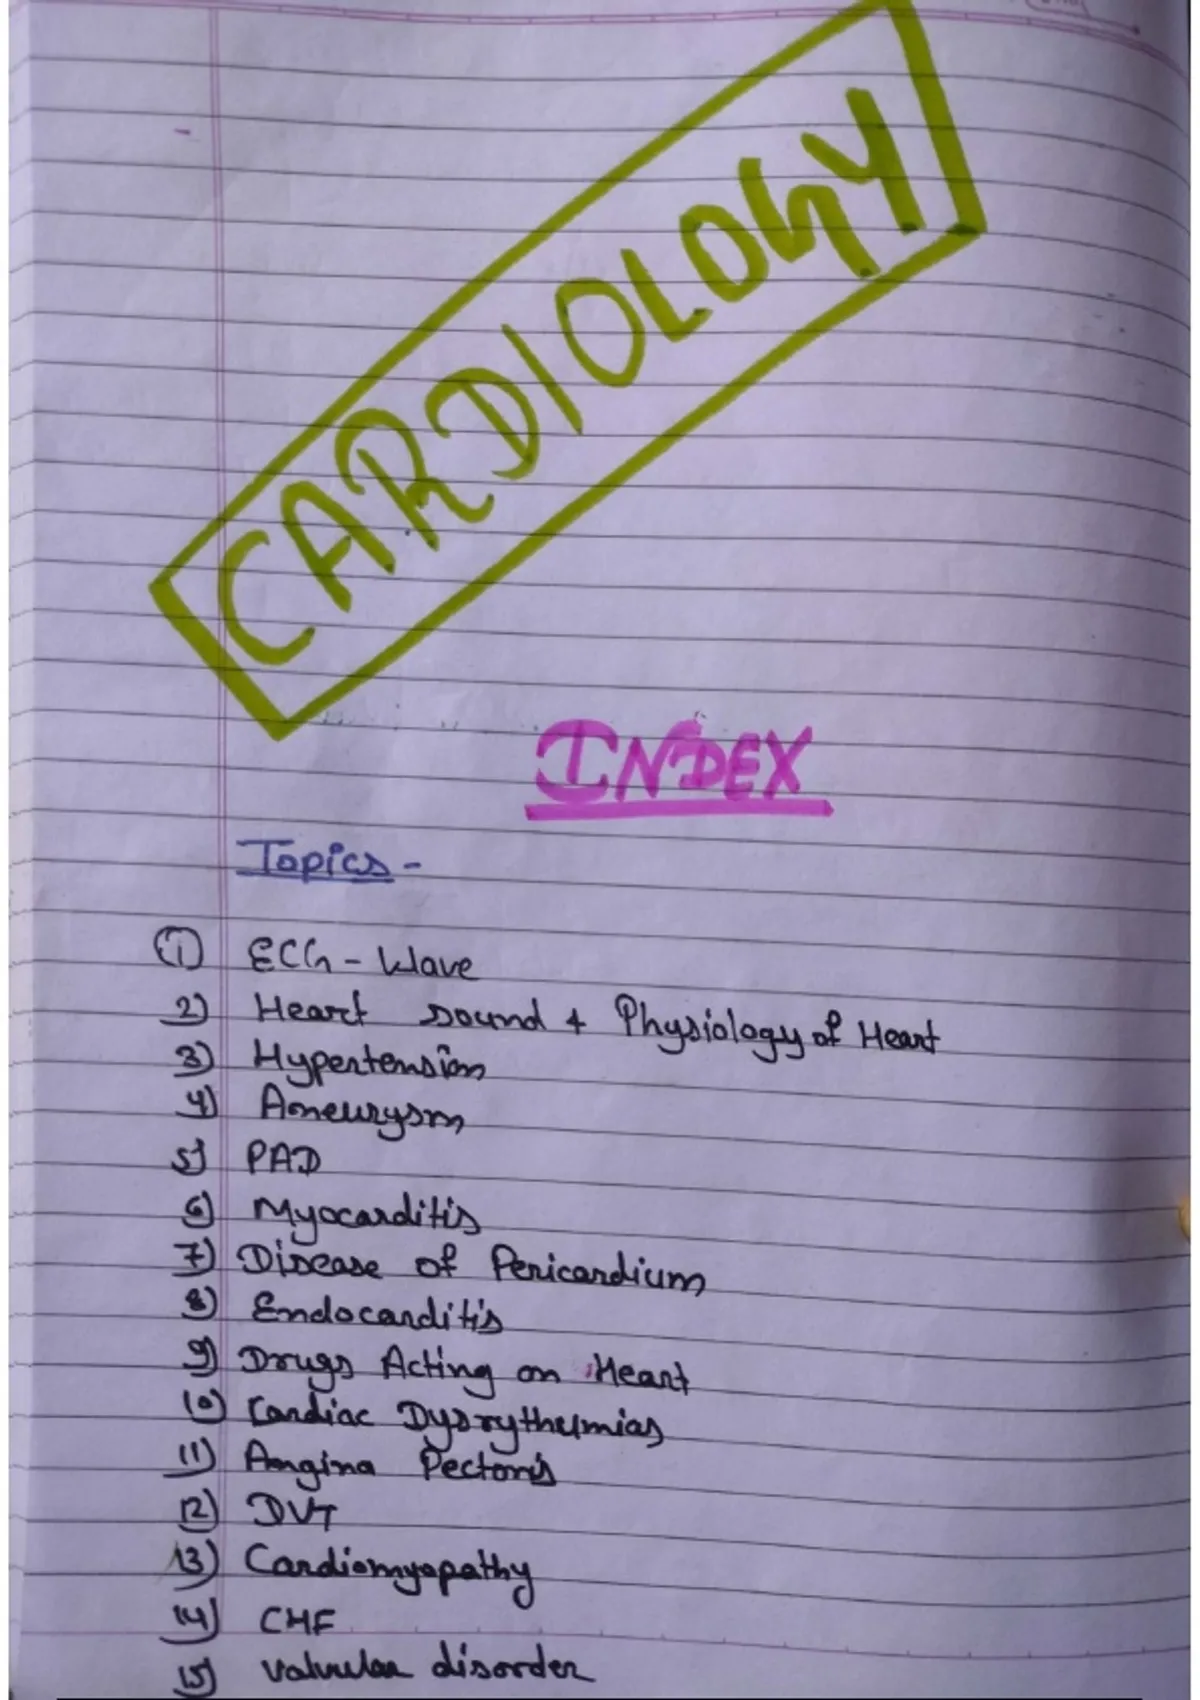 CARDIOLOGY
INDEX
Topics -
1 ECG - Wave
2) Heart sound + Physiology of Heart
3) Hypertension
4) Aneurysm
5) PAD
6) Myocarditis
7) Disease of Pericardium
8) Endocarditis
9) Drugs Acting on Heart
10) Cardiac Dysrythmias
11) Angina Pectoris
12) DVT
13) Cardiomyopathy
14) CHF
15) Valvular disorder